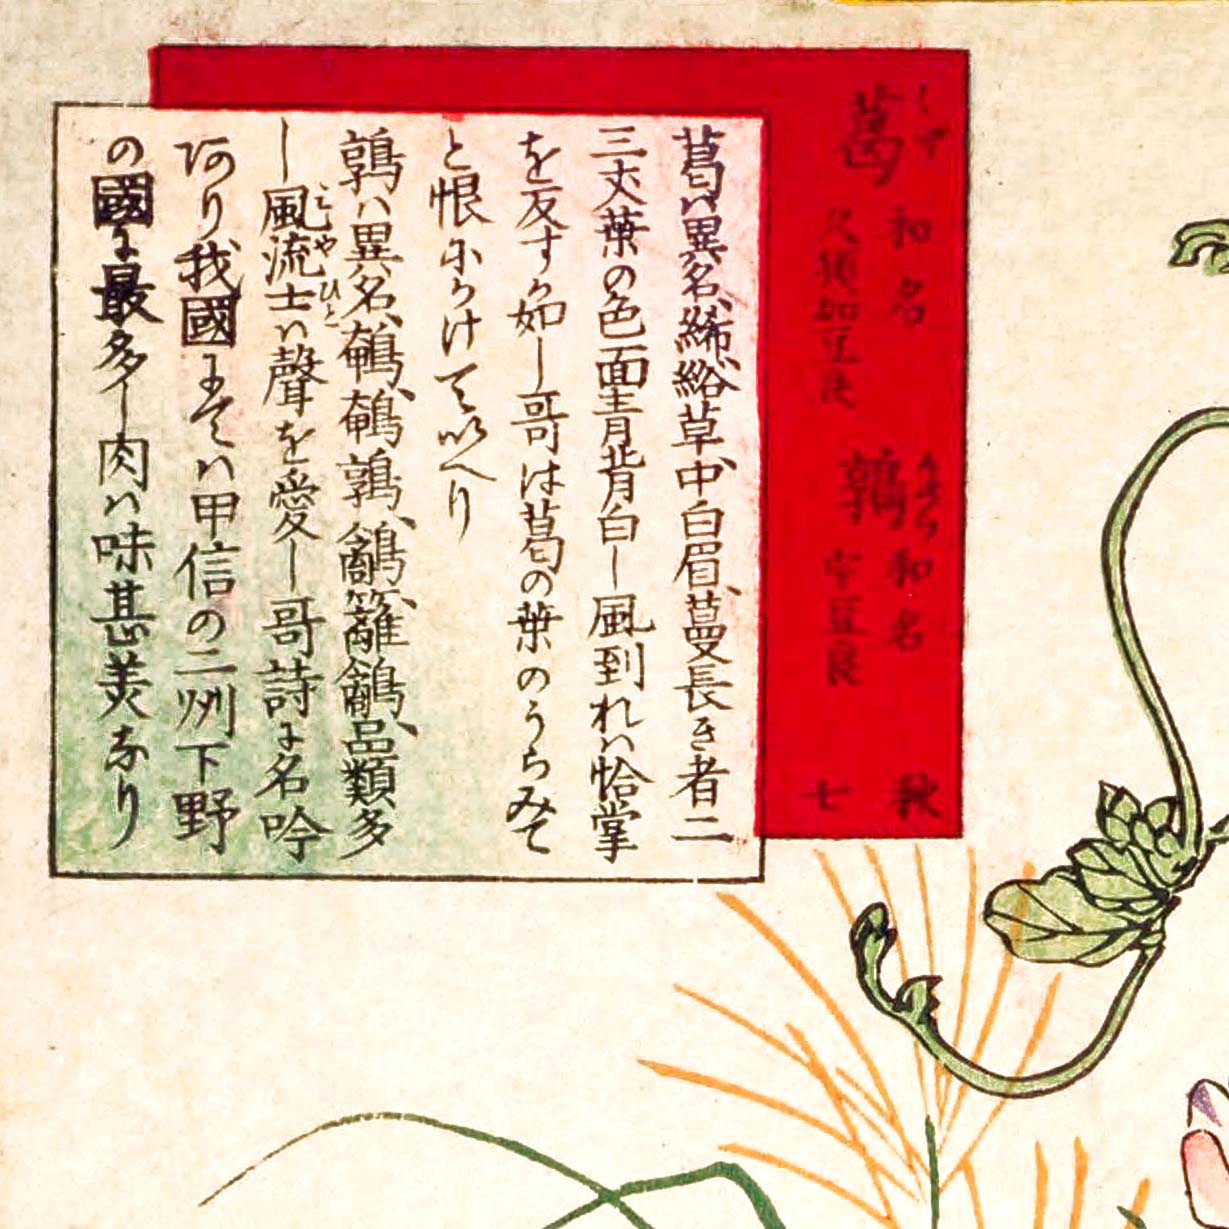 葛 くず 和名 久須加豆良
鶉 うずら 和名 宇豆良
秋 七
葛ハ異名、絺綌草、中白眉、蔓長き者二
三丈葉の色面青背白し風到れハ恰掌
を反すか如し哥は葛の葉のうらみて
と恨にかけて以へり
鶉ハ異名、鵪、鵪鶉、鶕、籬鶕、品類多
し風流士ハ聲を愛し哥詩に名吟
みやひと
あり我國にてハ甲信の二州下野
の國に最多し肉ハ味甚美なり